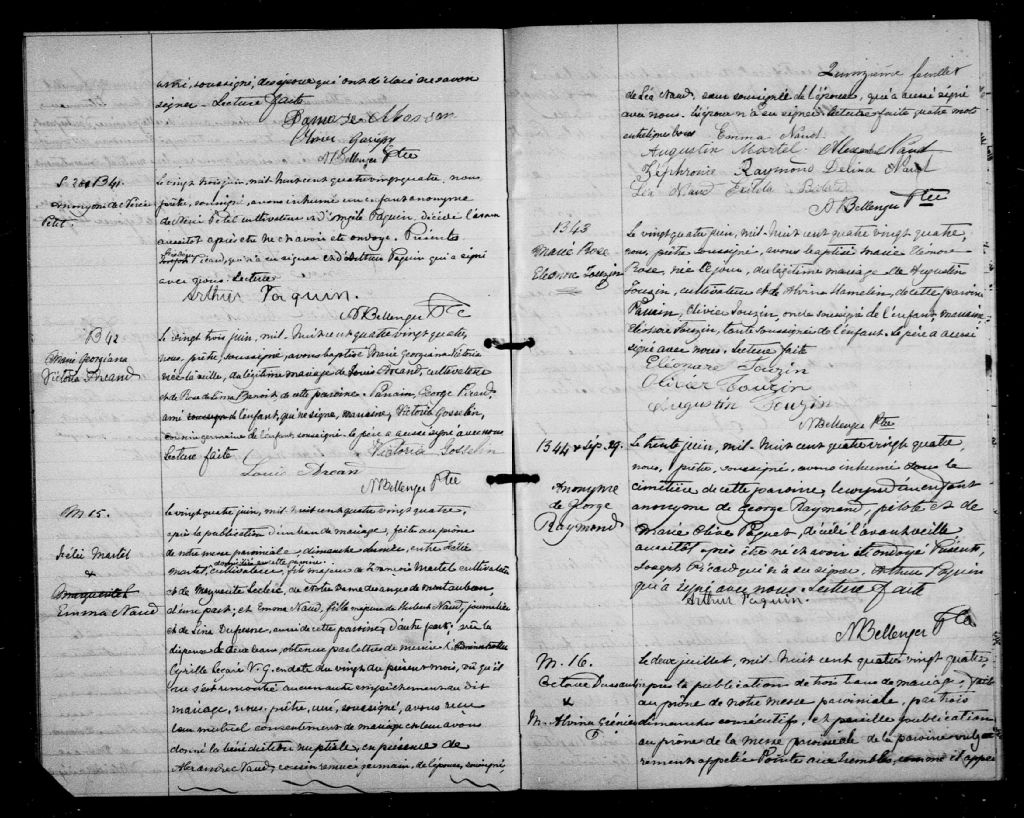 ami, soussigné, de l'époux qui ont déclaré ne savoir
signer. Lecture faite
Damase Masson
Olivier
N Bellenger Ptre
S. 28 1341.
Anonyme de Néré
Petit.
Le vingt trois juin, mil huit cent quatre vingt quatre, nous
prêtre, soussigné, avons inhumé un enfant anonyme
de Néré Petit cultivateur et d'Angèle Paquin, décédé l'avant
aussitôt après être né et avoir été ondoyé. Présents
Joseph Picard, qui n'a su signer et d'Arthur Paquin qui a signé
avec nous. Lecture
Arthur Paquin.
N Bellenger Ptre
1342
Marie Georgiana
Victoria Arcand
Le vingt trois juin, mil huit cent quatre vingt quatre,
nous, prêtre, soussigné, avons baptisé Marie Georgiana Victoria
née la veille, du légitime mariage de Louis Arcand, cultivateur
et de Rose de Lima Benoit de cette paroisse. Parrain, George Picard,
ami de l'enfant, qui ne signe, marraine, Victoria Gosselin,
cousine germaine de l'enfant, soussignée. Le père a aussi signé avec nous
Lecture faite
Victoria Gosselin
Louis Arcan
N Bellenger Ptre
M 15.
Félix Martel
&
Emma Naud
Le vingt quatre juin, mil huit cent quatre vingt quatre,
après la publication d'un ban de mariage, faite au prône
de notre messe paroissiale dimanche dernier, entre Félix
domicilié en cette paroisse
Martel, cultivateur, fils majeur de François Martel cultivateur
et de Marguerite Leclerc, de Notre Dame des anges de Montauban,
d'une part; et Emma Naud, fille majeure de Herbert Naud, journalier
et de Lina Dufresne, aussi de cette paroisse, d'autre part; vu la
dispense de deux bans, obtenue par lettres de
Cyrille Légaré V.G. en date du vingt du présent mois, vu qu'il
ne s'est rencontré aucun autre empêchement au dit
mariage, nous, prêtre, curé, soussigné, avons reçu
leur mutuel consentement de mariage et leur avons
donné la bénédiction nuptiale, en présence de
Alexandre Naud, cousin remué germain, de l'épouse, soussigné,
Quinzième feuillet
de Léa Naud, sœur soussignée de l'épouse, qui a aussi signé
avec nous. L'époux n'a su signer. Lecture faite quatre mots
Emma Naud
Augustin Martel. Alexandre Naud
Zéphronie Raymond Delina Naud
Léa Naud Exilda
N Bellenger Ptre
1343
Marie Rose
Eléonore Touzin
Le vingt quatre juin, mil-huit cent quatre vingt quatre,
nous, prêtre soussigné, avons baptisé Marie Eléonore
Rose, née ce jour, du légitime mariage de Augustin
Touzin, cultivateur et de Alvina Hamelin, de cette paroisse
Parrain, Olivier Touzin, oncle soussigné de l'enfant, marraine,
Eléonore Touzin, tante soussignée de l'enfant. Le père a aussi
signé avec nous. Lecture faite
Eléonare Touzin
Olivier Touzin
Augustin Touzin
N Bellenger Ptre
1344 & Sép. 29.
Anonyme
de George
Raymond
Le trente juin, mil-huit cent quatre vingt quatre,
nous, prêtre, soussigné, avons inhumé dans le
cimetière de cette paroisse, le corps d'un enfant
anonyme de George Raymond, pilote et de
Marie Olive Paquet, décédé l'avant veille
aussitôt après être né et avoir été ondoyé Présents,
Joseph Picard qui n'a su signer. Arthur Paquin
qui a signé avec nous. Lecture faite
Arthur Paquin.
N Bellenger Ptre
M. 16.
Octave Dussault
&
M. Alvina Grénier
Le deux juillet, mil-huit cent quatre vingt quatre
après la publication de trois bans de mariage, faite
au prône de notre messe paroissiale, par trois
dimanches consécutifs, et pareille publication
au prône de la messe paroissiale de la paroisse vulgai-
rement appelée Pointe aux trembles, comme il appert